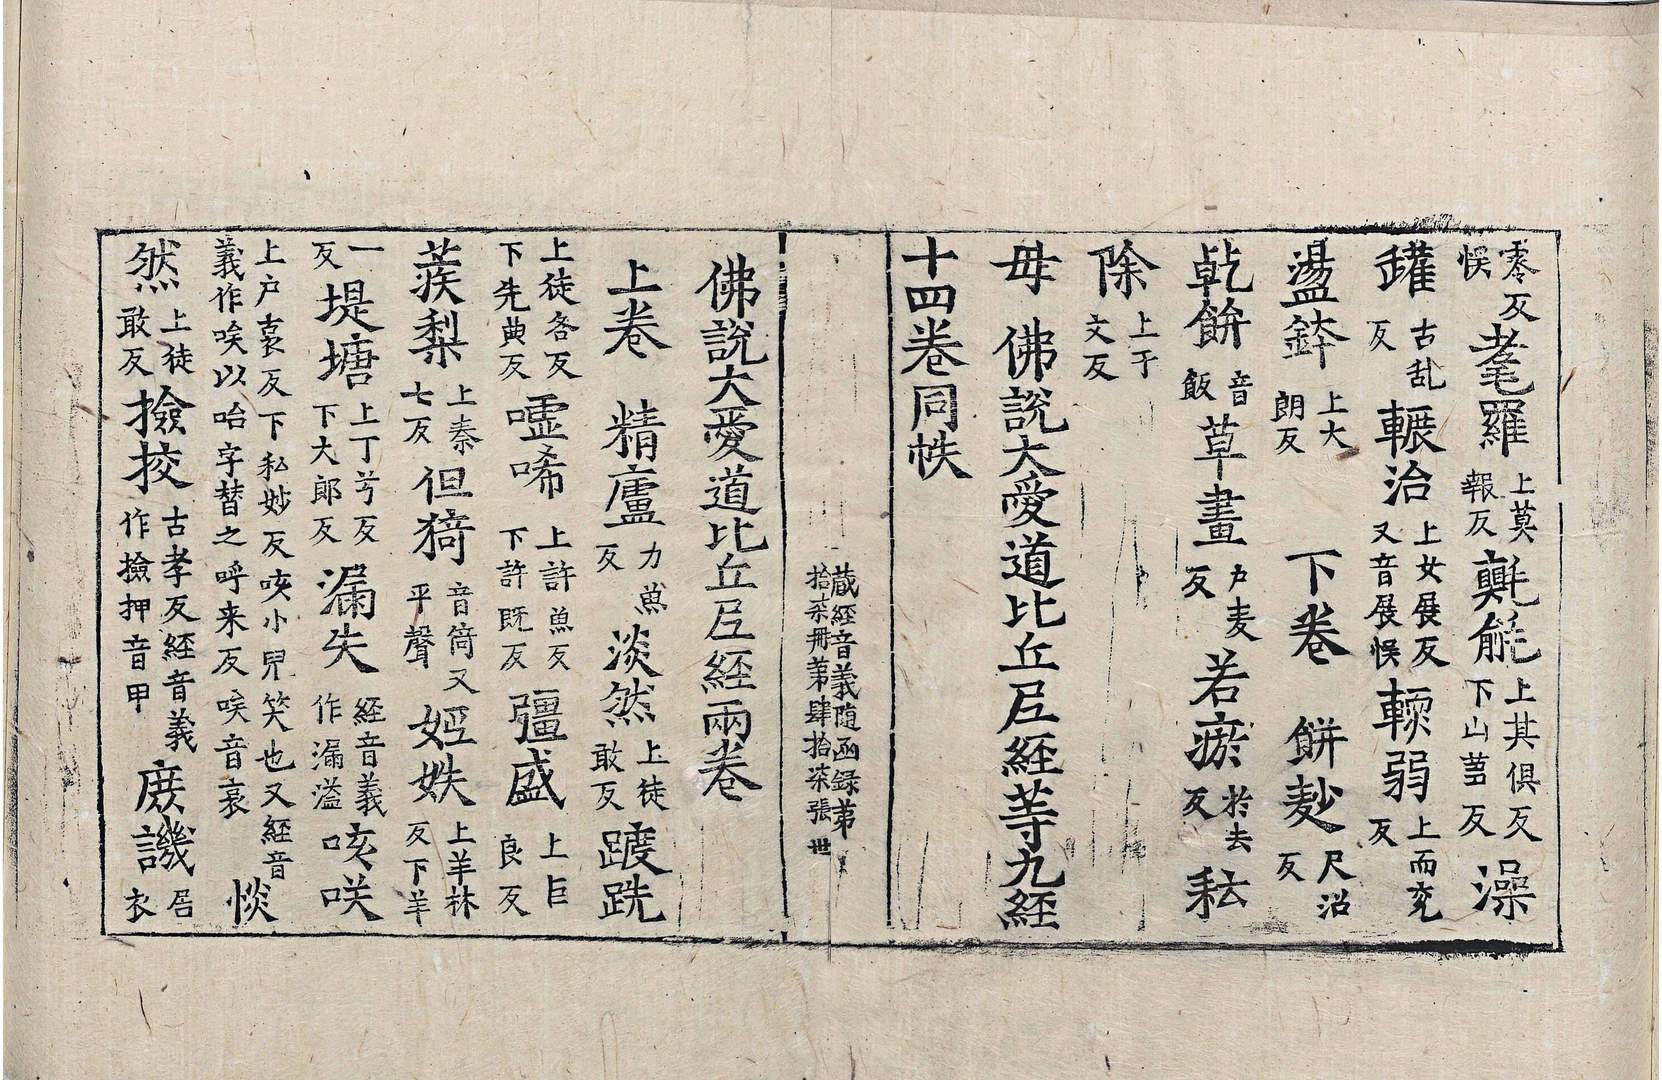 零反悮耄羅上莫報反氍毹上其俱反下山蒭反澡
罐古乱反輾治上女展反又音展悮輭弱上而兖反
盪鉢上大朗反　下卷　餅麨尺沼反
乹餅音飯草畫户麦反若瘀扵去反耘
除上于文反
毋　佛說大愛道比丘尼經䓁九經
十四卷同帙
藏經音義随函録第
拾柒冊第肆拾柒張　世
佛說大愛道比丘尼經兩卷
上卷　精廬力魚反淡然上徒敢反踱跣
上徒各反下先典反噓唏上許魚反下許既反彊盛上巨良反
蒺梨上秦七反但猗音倚又平聲婬妷上羊林反下羊
一反堤塘上丁兮反下大郎反漏失經音義作漏溢咳咲
上户袁反下私妙反咳小兒笑也又經音義作唉以咍字替之呼来反唉音哀　惔
然上徒敢反撿挍古孝反經音義作撿押音甲庻譏居衣